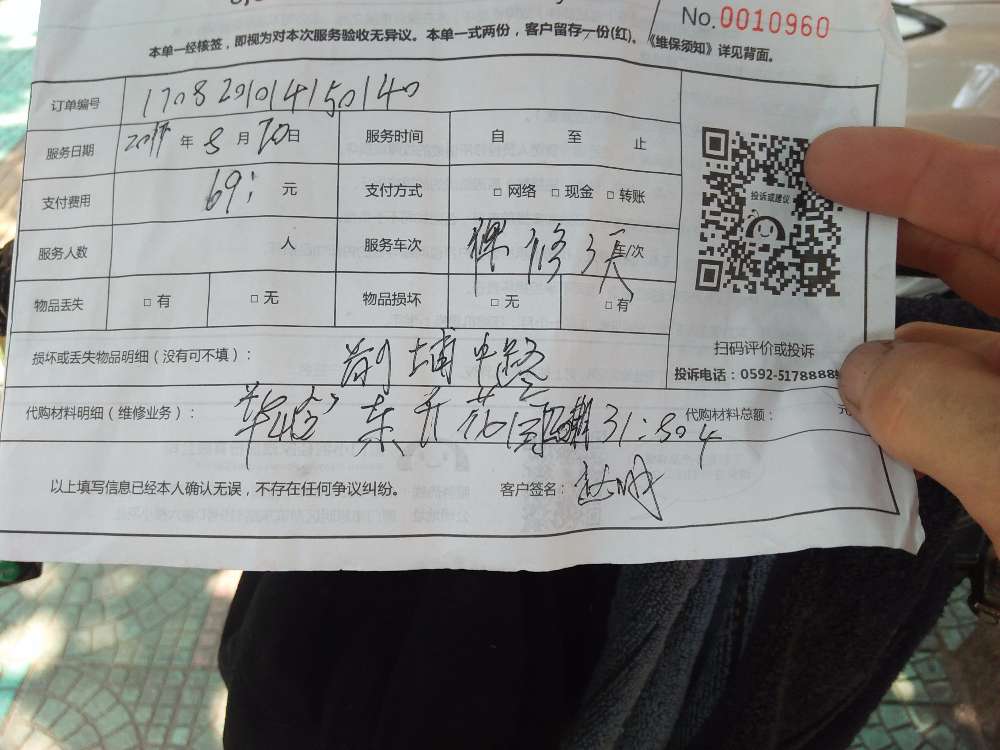 No.0010960
本单一经核签，即视为对本次服务验收无异议。本单一式两份，客户留存一份(红)。《维保须知》详见背面。
订单编号 1708291014150140
服务日期 2017 年 8 月 30 日 服务时间 自 至 止
支付费用 69: 元 支付方式 □ 网络 □ 现金 □ 转账
服务人数 人 服务车次 保修 3天 车/次
物品丢失 □ 有 □ 无 物品损坏 □ 无 □ 有
投诉或建议
扫码评价或投诉
投诉电话：0592-5178889
损坏或丢失物品明细（没有可不填）： 埔中路
代购材料明细（维修业务）： 东 花园 31:504 代购材料总额： 元
以上填写信息已经本人确认无误，不存在任何争议纠纷。 客户签名：